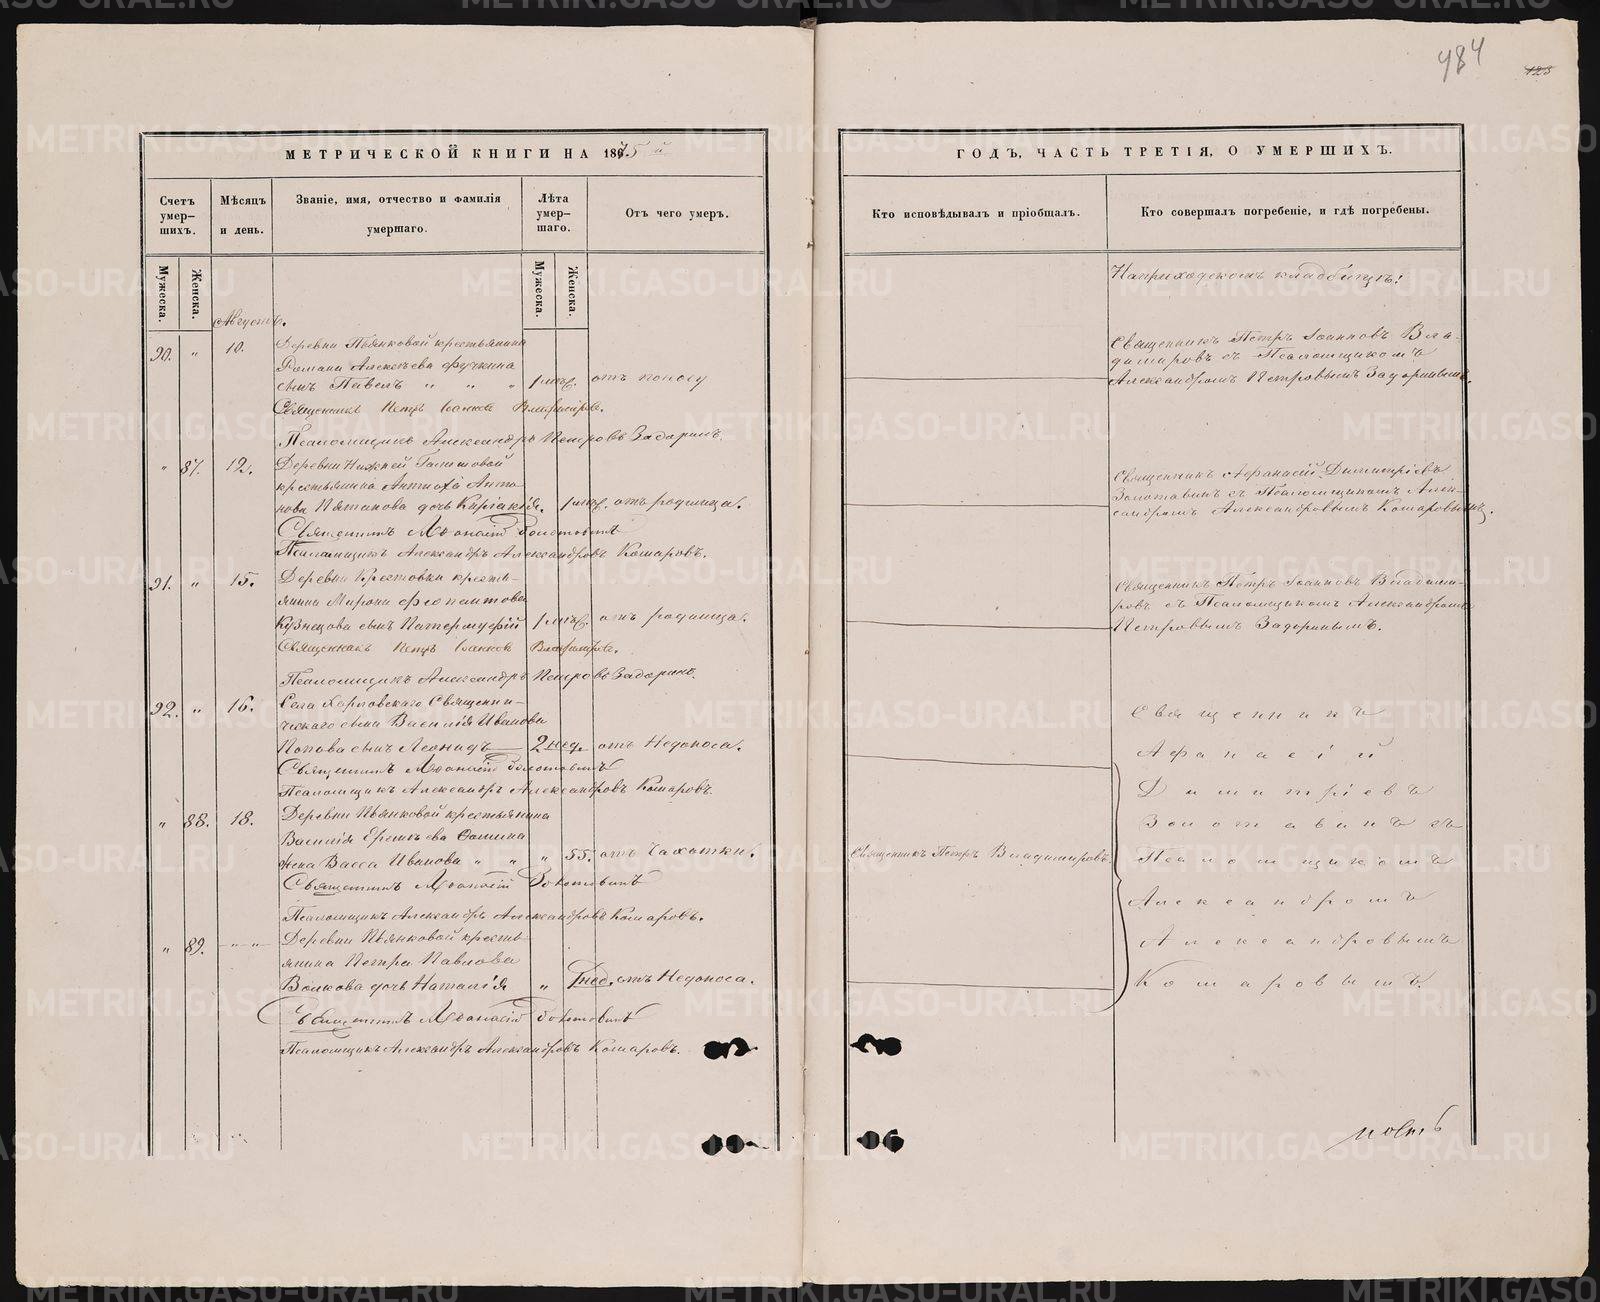 484
123
МЕТРИЧЕСКОЙ КНИГИ НА 1875 й
ГОДЪ, ЧАСТЬ ТРЕТІЯ, О УМЕРШИХЪ.
Счетъ умер- шихъ.
Мѣсяцъ и день.
Званіе, имя, отчество и фамилія умершаго.
Лѣта умер- шаго.
Отъ чего умеръ.
Кто исповѣдывалъ и пріобщалъ.
Кто совершалъ погребеніе, и гдѣ погребены.
Мужеска.
Женска.
Мужеска.
Женска.
На приходскомъ кладбищѣ.
Августъ.
90. " 10. Деревни Пьянковой крестьянина
Романа Алексѣева
сынъ Павелъ " " " 1 мѣс. отъ поносу
Священникъ Петръ Іоанновъ Владиміровъ.
Псаломщикъ Александръ Петровъ Задоринъ.
Священникъ Петръ Іоанновъ Вла-
диміровъ съ Псаломщикомъ
Александромъ Петровымъ Задоринымъ.
" 87. 12. Деревни Нижней
крестьянина Антипа Анто-
нова Пятанова дочь Киріакія. 1 мѣс. отъ родимца.
Священникъ Аѳанасій Золотавинъ
Псаломщикъ Александръ Александровъ Комаровъ.
Священникъ Аѳанасій Димитріевъ
Золотавинъ съ Псаломщикомъ Алек-
сандромъ Александровымъ Комаровымъ.
91. " 15. Деревни Крестовки кресть-
янина Мирона
Кузнецова сынъ 1 мѣс. отъ родимца.
Священникъ Петръ Іоанновъ Владиміровъ.
Псаломщикъ Александръ Петровъ Задоринъ.
Священникъ Петръ Іоанновъ Владимі-
ровъ съ Псаломщикомъ Александромъ
Петровымъ Задоринымъ.
92. " 16. Села Харловскаго Священни-
ческаго сына Василія Иванова
Попова сынъ Леонидъ 2 нед. отъ Недоноса.
Священникъ Аѳанасій Золотавинъ
Псаломщикъ Александръ Александровъ Комаровъ.
" 88. 18. Деревни Пьянковой крестьянина
Василія Ѳомина
жена Васса Иванова " " " 55. отъ Чахотки.
Священникъ Аѳанасій Золотавинъ
Псаломщикъ Александръ Александровъ Комаровъ.
Священникъ Петръ Владиміровъ
" 89. " " Деревни Пьянковой кресть-
янина Петра Павлова
Волкова дочь Наталія " 1 нед. отъ Недоноса.
Священникъ Аѳанасій Золотавинъ
Псаломщикъ Александръ Александровъ Комаровъ.
Священникъ
Аѳанасій
Димитріевъ
Золотавинъ съ
Псаломщикомъ
Александромъ
Александровымъ
Комаровымъ.
METRIKI.GASO-URAL.RU